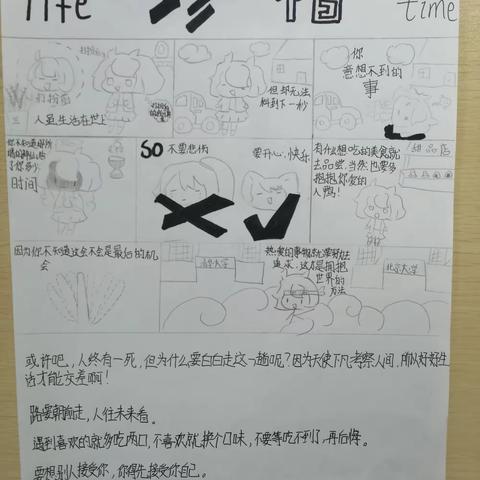 life 珍惜 time
人虽生活在世上
但却无法
料到下一秒
你
意想不到的
事
你不知道哪所
时间
SO 不要悲伤
要开心,快乐
有什么想吃的美食就
去品尝,当然也要多
抱抱你爱的
人啊!
甜品店
因为你不知道这会不会是最后的机
会
热爱的事物就要努力
追求,这才是拥抱
世界的
方法
北京大学
或许吧,人终有一死,但为什么要白白走这一趟呢?因为天使下凡考察人间,所以好好生
活才能交差啊!
路要朝前走,人往未来看。
遇到喜欢的就多吃两口,不喜欢就换个口味,不要等吃不到了,再后悔。
要想别人接受你,你得先接受你自己。